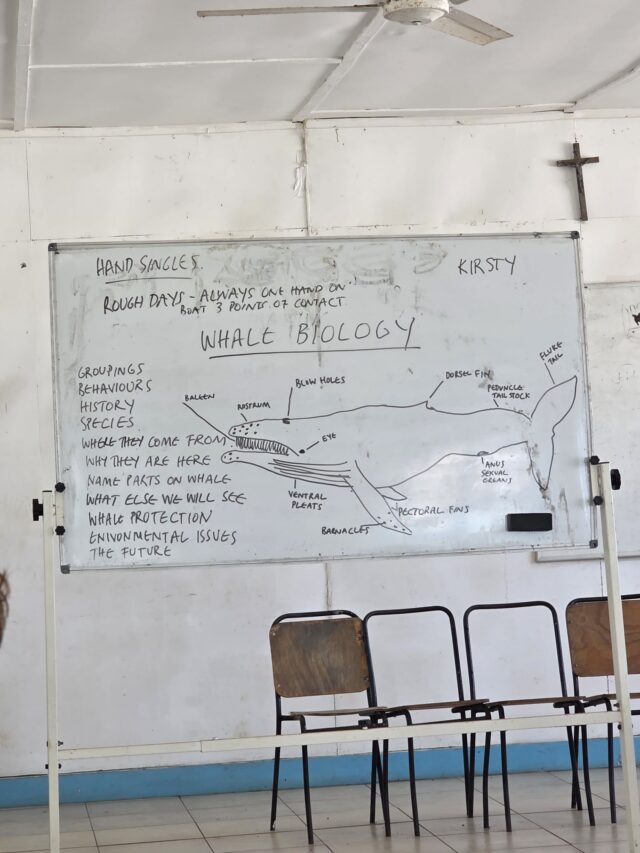 HAND SINGLES
KIRSTY
ROUGH DAYS - ALWAYS ONE HAND ON
BOAT 3 POINTS OF CONTACT
WHALE BIOLOGY
GROUPINGS
BEHAVIOURS
HISTORY
SPECIES
WHERE THEY COME FROM
WHY THEY ARE HERE
NAME PARTS ON WHALE
WHAT ELSE WE WILL SEE
WHALE PROTECTION
ENIVONMENTAL ISSUES
THE FUTURE
BALEEN
ROSTRUM
BLOW HOLES
EYE
DORSEL FIN
PEDUNCLE
TAIL STOCK
FLUKE
TAIL
VENTRAL
PLEATS
BARNACLES
PECTORAL FINS
ANUS
SEXUAL
ORGANS